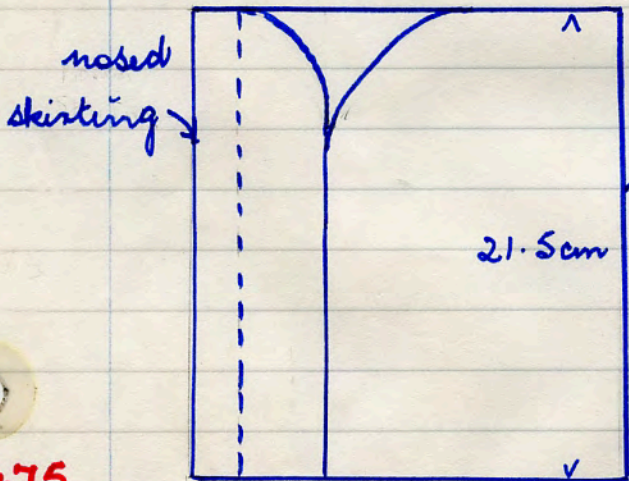 nosed
skirting
21.5cm
75